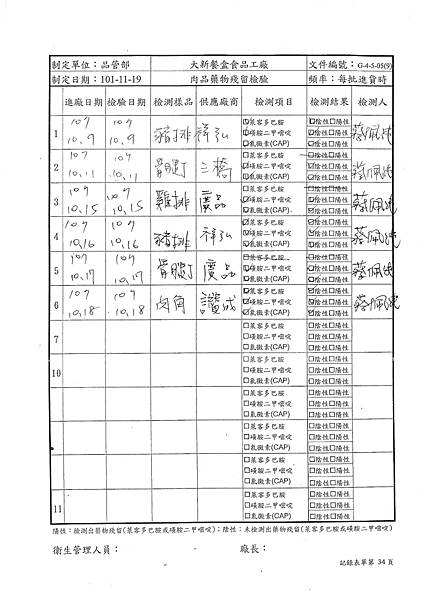 制定單位：品管部 大新餐盒食品工廠 文件編號：G-4-5-05(9)
制定日期：101-11-19 肉品藥物殘留檢驗 頻率：每批進貨時
進廠日期 檢驗日期 檢測樣品 供應廠商 檢測項目 檢測結果 檢測人
1 107 10.9 107 10.9 豬排 祥弘 ☑萊客多巴胺 ☑陰性☐陽性 蔡佩
☑磺胺二甲嘧啶 ☑陰性☐陽性
☑氯黴素(CAP) ☑陰性☐陽性
2 107 10.11 107 10.11 骨腿丁 三橋 ☐萊客多巴胺 ☐陰性☐陽性 蔡佩
☑磺胺二甲嘧啶 ☑陰性☐陽性
☑氯黴素(CAP) ☑陰性☐陽性
3 107 10.15 107 10.15 雞排 廣品 ☐萊客多巴胺 ☐陰性☐陽性 蔡佩
☑磺胺二甲嘧啶 ☑陰性☐陽性
☑氯黴素(CAP) ☑陰性☐陽性
4 107 10.16 107 10.16 豬排 祥弘 ☑萊客多巴胺 ☑陰性☐陽性 蔡佩
☑磺胺二甲嘧啶 ☑陰性☐陽性
☑氯黴素(CAP) ☑陰性☐陽性
5 107 10.17 107 10.17 骨腿丁 廣品 ☐萊客多巴胺 ☐陰性☐陽性 蔡佩
☑磺胺二甲嘧啶 ☑陰性☐陽性
☑氯黴素(CAP) ☑陰性☐陽性
6 107 10.18 107 10.18 肉角 讚成 ☑萊客多巴胺 ☑陰性☐陽性 蔡佩
☑磺胺二甲嘧啶 ☑陰性☐陽性
☑氯黴素(CAP) ☑陰性☐陽性
7 ☐萊客多巴胺 ☐陰性☐陽性
☐磺胺二甲嘧啶 ☐陰性☐陽性
☐氯黴素(CAP) ☐陰性☐陽性
10 ☐萊客多巴胺 ☐陰性☐陽性
☐磺胺二甲嘧啶 ☐陰性☐陽性
☐氯黴素(CAP) ☐陰性☐陽性
☐萊客多巴胺 ☐陰性☐陽性
☐磺胺二甲嘧啶 ☐陰性☐陽性
☐氯黴素(CAP) ☐陰性☐陽性
☐萊客多巴胺 ☐陰性☐陽性
☐磺胺二甲嘧啶 ☐陰性☐陽性
☐氯黴素(CAP) ☐陰性☐陽性
☐萊客多巴胺 ☐陰性☐陽性
☐磺胺二甲嘧啶 ☐陰性☐陽性
☐氯黴素(CAP) ☐陰性☐陽性
11 ☐萊客多巴胺 ☐陰性☐陽性
☐磺胺二甲嘧啶 ☐陰性☐陽性
☐氯黴素(CAP) ☐陰性☐陽性
陽性：檢測出藥物殘留(萊客多巴胺或磺胺二甲嘧啶)；陰性：未檢測出藥物殘留(萊客多巴胺或磺胺二甲嘧啶)
衛生管理人員： 廠長：
記錄表單第 34 頁